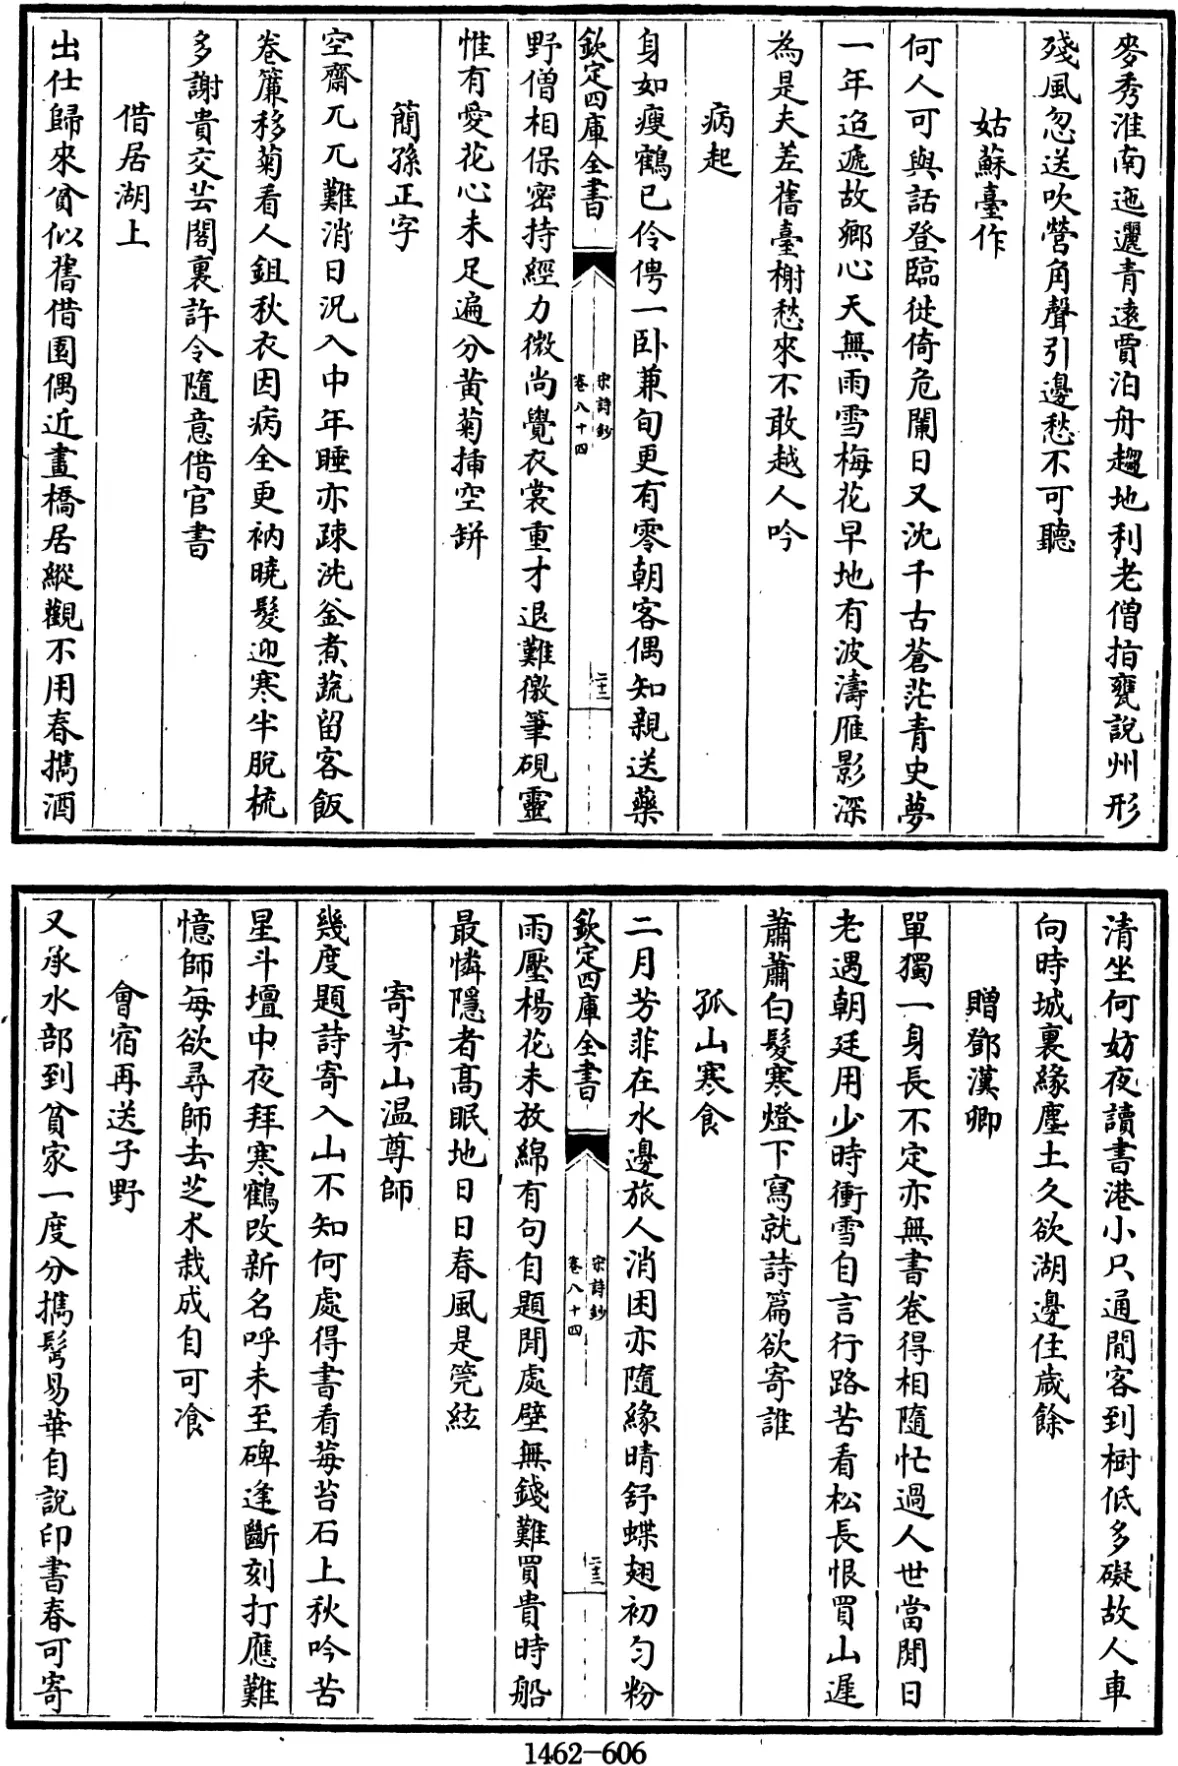 麥秀淮南迤邐青遠賈泊舟趨地利老僧指甕說州形
殘風忽送吹營角聲引邊愁不可聽
姑蘇臺作
何人可與話登臨徙倚危闌日又沈千古蒼茫青史夢
一年迢遞故鄉心天無雨雪梅花早地有波濤雁影深
為是夫差舊臺榭愁來不敢越人吟
病起
身如瘦鶴已伶俜一卧兼旬更有零朝客偶知親送藥
欽定四庫全書
宋詩鈔
卷八十四
二十二
野僧相保密持經力微尚覺衣裳重才退難徼筆硯靈
惟有愛花心未足遍分黄菊插空缾
簡孫正字
空齋兀兀難消日況入中年睡亦疎洗釜煮蔬留客飯
卷簾移菊看人鉏秋衣因病全更衲曉髮迎寒半脫梳
多謝貴交芸閣裏許令隨意借官書
借居湖上
出仕歸來貧似舊借園偶近畫橋居縱觀不用春擕酒
清坐何妨夜讀書港小只通閒客到樹低多礙故人車
向時城裏緣塵土久欲湖邊住歲餘
贈鄧漢卿
單獨一身長不定亦無書卷得相隨忙過人世當閒日
老遇朝廷用少時衝雪自言行路苦看松長恨買山遲
蕭蕭白髮寒燈下寫就詩篇欲寄誰
孤山寒食
二月芳菲在水邊旅人消困亦隨緣晴舒蝶翅初勻粉
欽定四庫全書
宋詩鈔
卷八十四
二十三
雨壓楊花未放綿有句自題閒處壁無錢難買貴時船
最憐隱者髙眠地日日春風是筦絃
寄茅山温尊師
幾度題詩寄入山不知何處得書看莓苔石上秋吟苦
星斗壇中夜拜寒鶴改新名呼未至碑逢斷刻打應難
憶師每欲尋師去芝术栽成自可飡
會宿再送子野
又承水部到貧家一度分擕鬂易華自說印書春可寄
1462-606